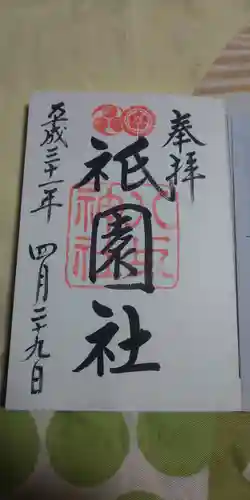 奉拝
祇園社
八坂神社
平成三十一年
四月二十九日